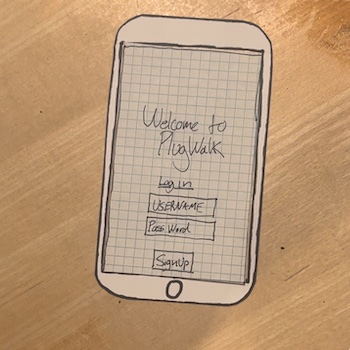 Welcome to
PlugWalk
Log in
USERNAME
PassWord
SignUp